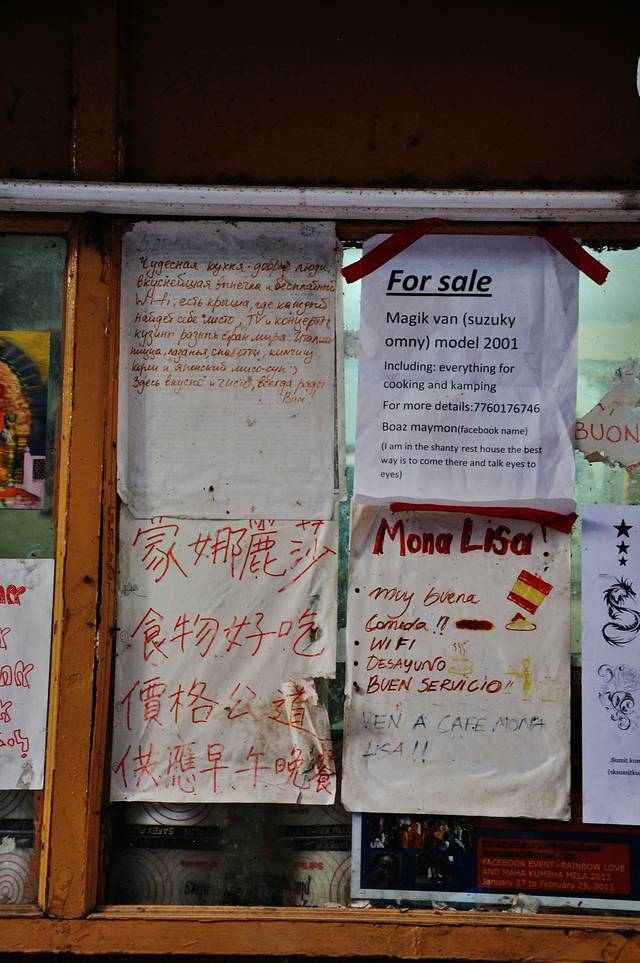 Чудесная кухня - добрые люди,
вкуснейшая выпечка и бесплатный
Wi-fi, есть крыша, где каждый
найдёт себе место, TV и концерты,
кузин разных стран мира: Италия
пицца, лазанья, спагетти,
и японский мисо-суп :)
Здесь вкусно и чисто, всегда рады
Вам!
蒙娜麗莎
食物好吃
價格公道
供應早午晚餐
For sale
Magik van (suzuky
omny) model 2001
Including: everything for
cooking and kamping
For more details:7760176746
Boaz maymon(facebook name)
(I am in the shanty rest house the best
way is to come there and talk eyes to
eyes)
Mona Lisa!
• muy buena
Comida !!
• WIFI
• DESAYUNO
• BUEN SERVICIO!!
VEN A CAFE MONA
LISA!!
BUON
FACEBOOK EVENT>RAINBOW LOVE
AND MAHA KUMBHA MELA 2013
January 27 to February 25, 2013